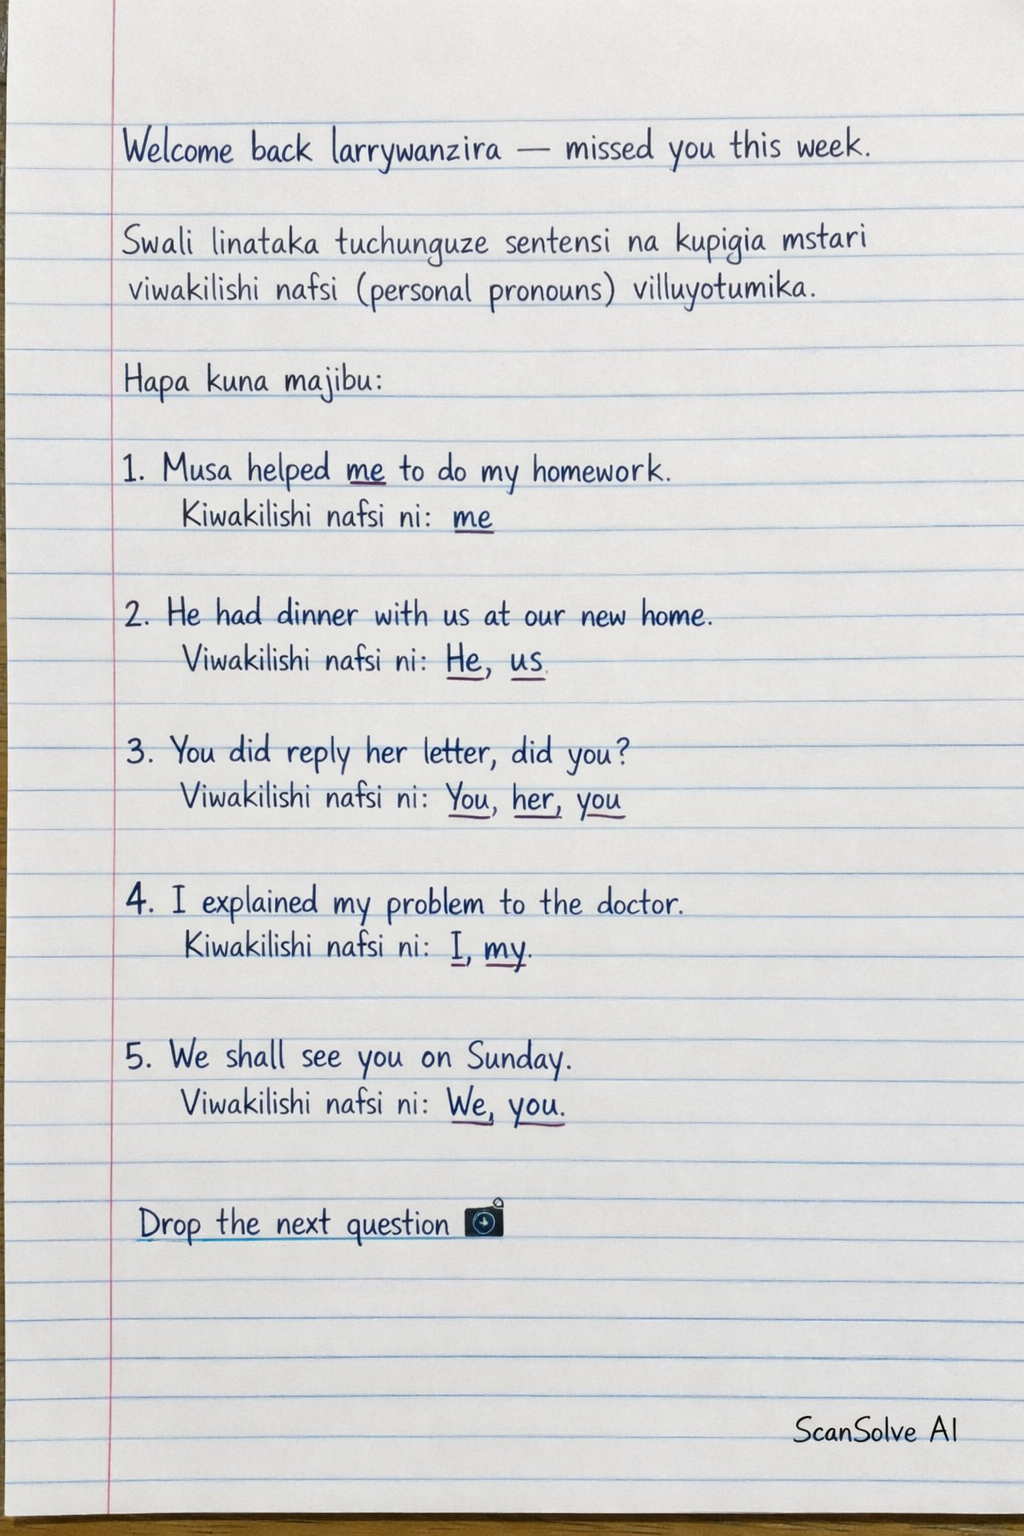 Welcome back larrywanzira — missed you this week.
Swali linataka tuchunguze sentensi na kupigia mstari
viwakilishi nafsi (personal pronouns) villuyotumika.
Hapa kuna majibu:
1. Musa helped me to do my homework.
Kiwakilishi nafsi ni: me
2. He had dinner with us at our new home.
Viwakilishi nafsi ni: He, us
3. You did reply her letter, did you?
Viwakilishi nafsi ni: You, her, you
4. I explained my problem to the doctor.
Kiwakilishi nafsi ni: I, my.
5. We shall see you on Sunday.
Viwakilishi nafsi ni: We, you.
Drop the next question
ScanSolve AI